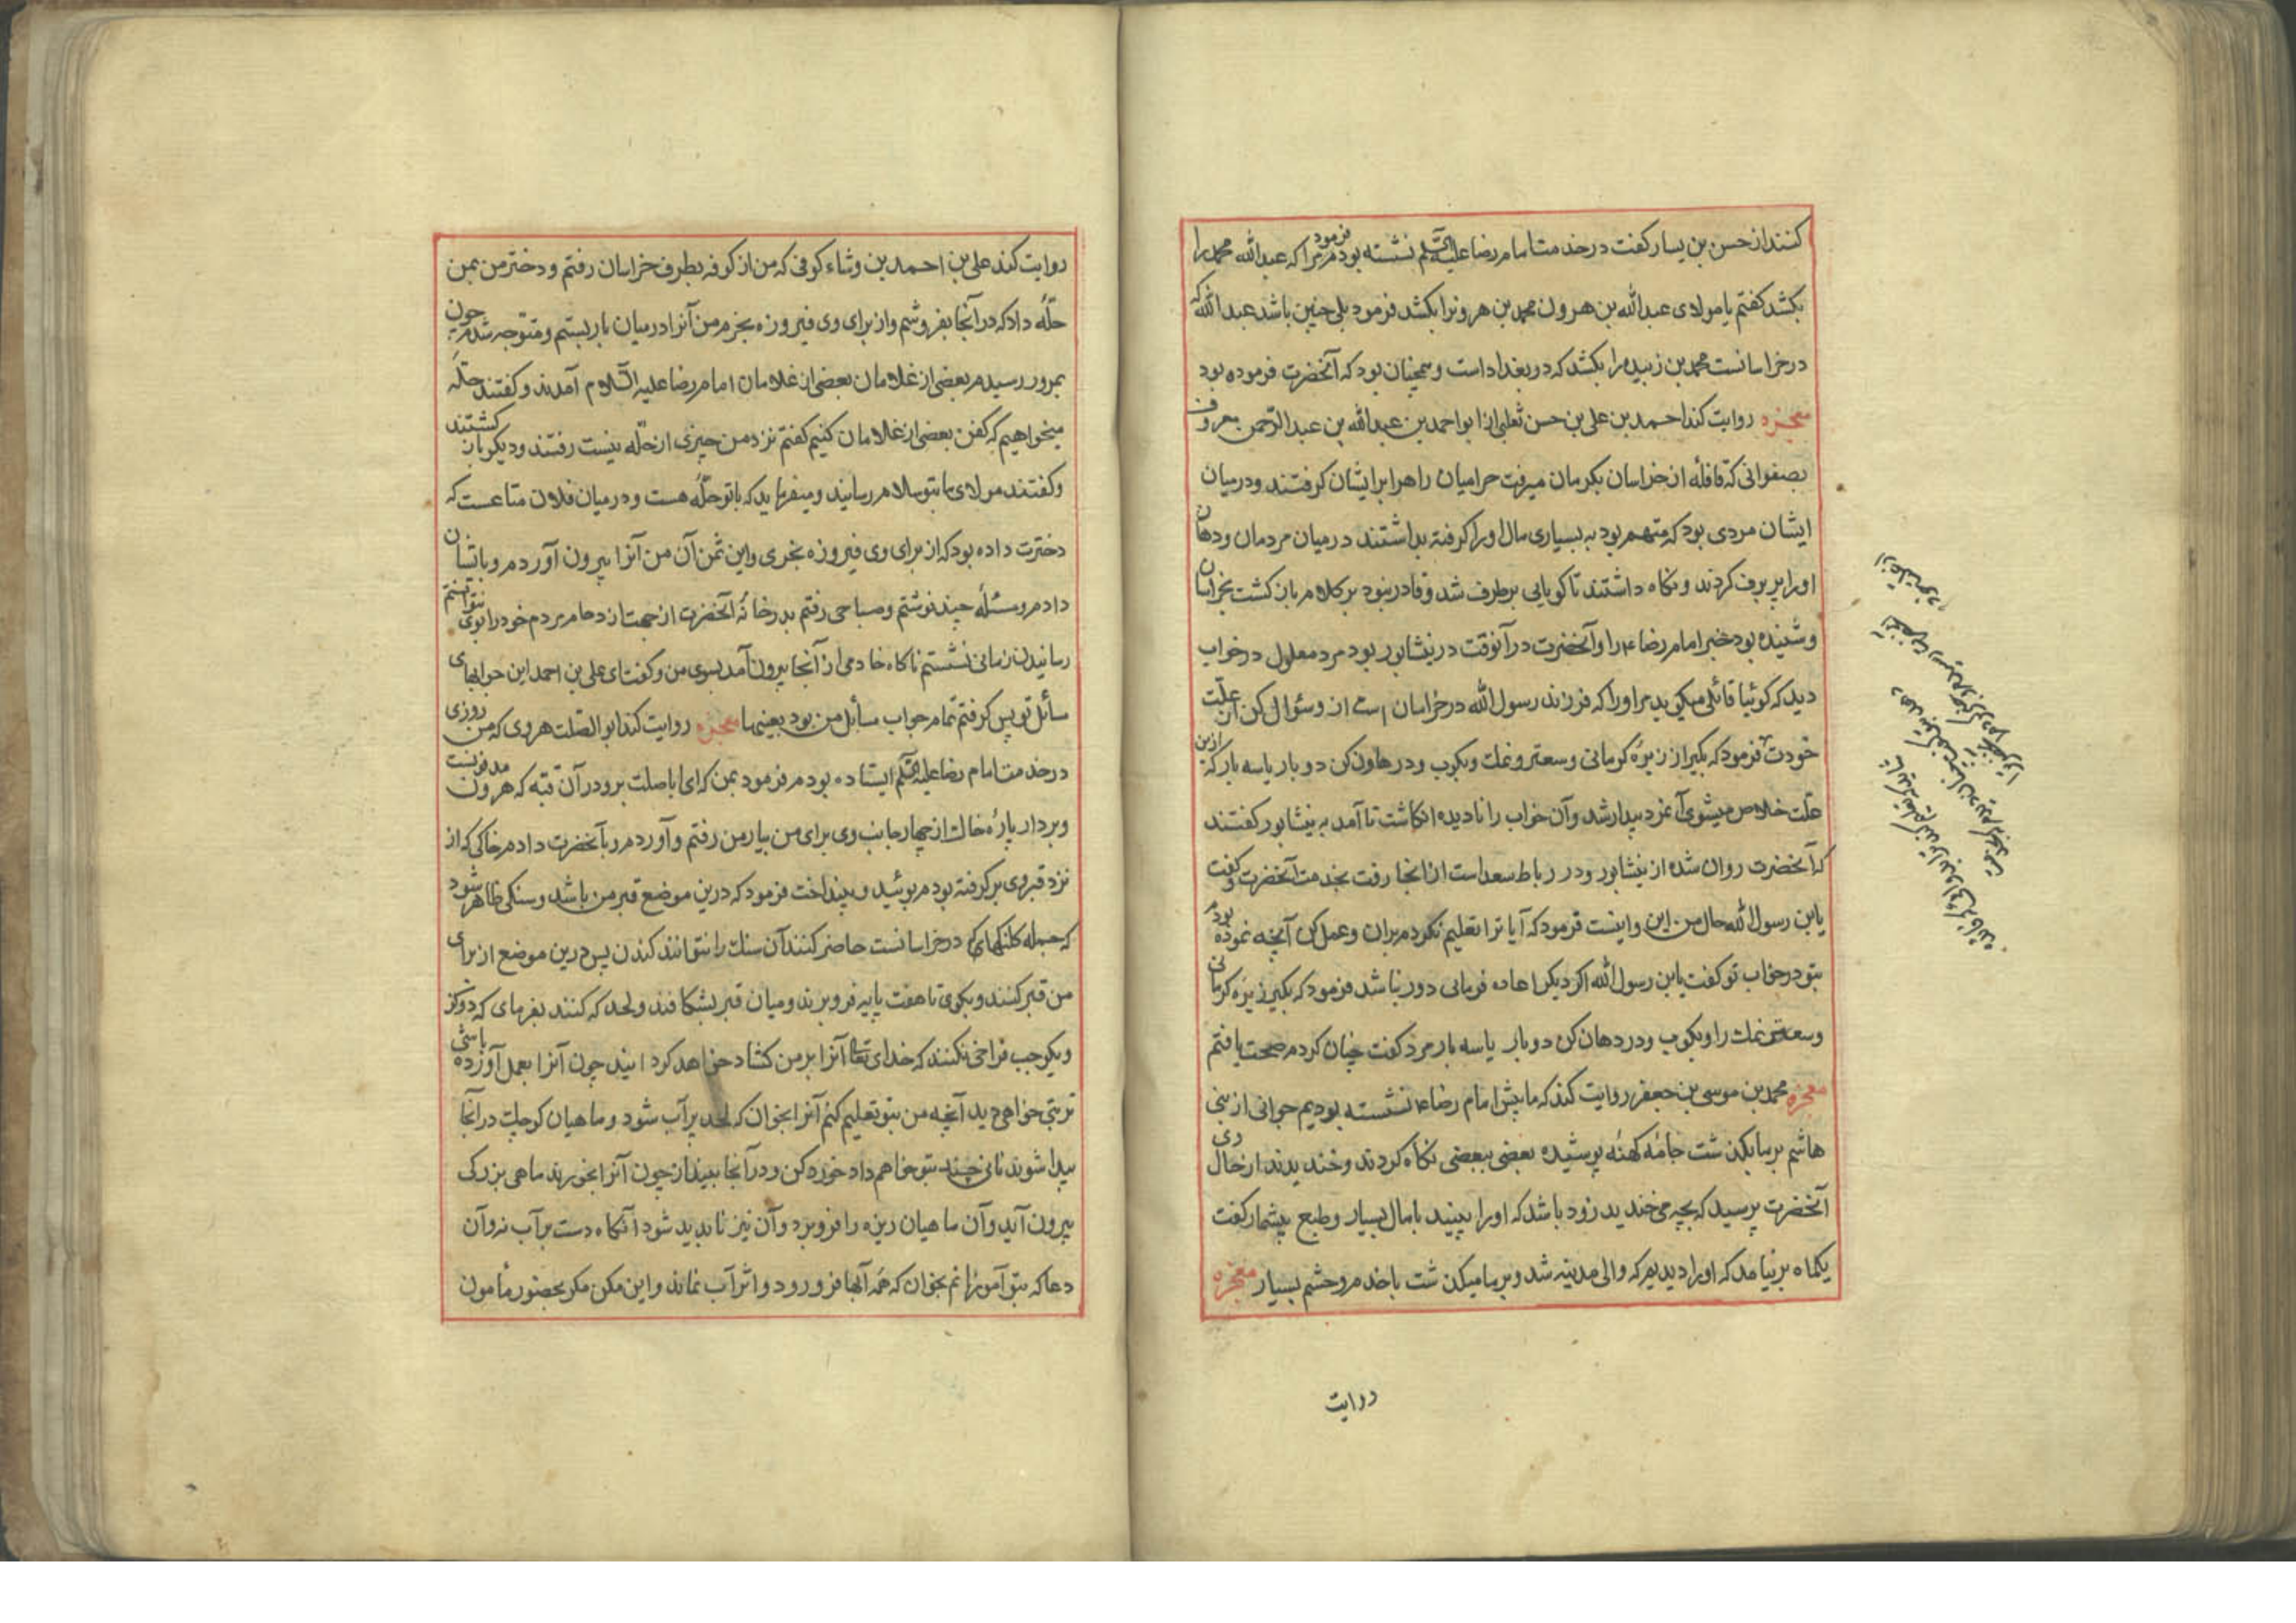 کنند از حسن بن یسار کفت در خدمت امام رضا علیه السّلم نشسته بودم فرمود مرا که عبدالله محمد را
بکشد کفتم یا مولای عبدالله بن هرون محمد بن هرونرا بکشد فرمود بلی چنین باشد عبدالله که
در خراسانست محمد بن زبیده را بکشد که در بغداد است و همچنان بود که آنحضرت فرموده بود
معجزه روایت کند احمد بن علی بن حسن ثعلبی از ابو احمد بن عبدالله بن عبدالرّحمن معروف
بصفوانی که قافلهٔ از خراسان بکرمان میرفت حرامیان راه را بر ایشان کرفتند و در میان
ایشان مردی بود که متهم بود به بسیاری مال او را کرفته بداشتند در میان مردمان و دهان
او را پر برف کردند و نکاه داشتند تا کویایی بر طرف شد و قادر نبود بر کلام باز کشت بخراسان
و شنیده بود خبر امام رضا ع را و آنحضرت در آنوقت در نیشابور بود مرد معلول در خواب
دید که کوئیا قائلی میکوید مر او را که فرزند رسول الله در خراسان است از و سئوال کن از علّت
خودت فرمود که بکیر از زیرهٔ کرمانی و سعتر و نمک و بکوب و در دهان کن دو بار یا سه بار که ازین
علّت خلاص میشوی آنمرد بیدار شد و آن خواب را نادیده انکاشت تا آمد به نیشابور کفتند
که آنحضرت روان شده از نیشابور و در رباط سعد است از انجا رفت بخدمت آنحضرت و کفت
یابن رسول الله حال من این و اینست فرمود که آیا ترا تعلیم نکردم بران و عمل کن آنچه نموده بودم
بتو در خواب تو کفت یابن رسول الله اکر دیکر اعاده فرمانی دور نباشد فرمود که بکیر زیرهٔ کرمانی
و سعتر و نمک را و بکوب و در دهان کن دو بار یا سه بار مرد کفت چنان کردم صحت یافتم
معجزه محمد بن موسی بن جعفر روایت کند که ما پیش امام رضا ع نشسته بودیم جوانی از بنی
هاشم بر ما بکذشت جامهٔ کهنه پوشیده بعضی ببعضی نکاه کردند و خندیدند از حال وی
آنحضرت پرسید که بچه می خندید زود باشد که او را ببینید با مال بسیار و طبع بیشمار کفت
یکماه بر نیامد که او را دیدیم که والی مدینه شد و بر ما میکذشت با خدم و حشم بسیار معجزه
روایت
روایت کند علی بن احمد بن وشاء کوفی که من از کوفه بطرف خراسان رفتم و دختر من بمن
حلّهٔ داد که در آنجا بفروشم و از برای وی فیروزه بخرم من آنرا در میان بار بستم و متوّجه شدم چون
بمرو رسیدم بعضی از غلامان بعضی از غلامان امام رضا علیه السّلام آمدند و کفتند حلّهٔ
میخواهیم که کفن بعضی از غلامان کنیم کفتم نزد من چیزی از حلّه نیست رفتند و دیکر باز کشتند
و کفتند مولای ما بتو سلام رسانید و میفرماید که با تو حلّهٔ هست و در میان فلان متاعست که
دخترت داده بود که از برای وی فیروزه بخری و این ثمن آن من آنرا بیرون آوردم و باتیشان
دادم و مسئلهٔ چند نوشتم و صباحی رفتم بدر خانهٔ آنحضرت از جهت ازدحام مردم خود را بوی نتوانستم
رسانیدن زمانی نشستم ناکاه خادمی از آنجا بیرون آمد بسوی من و کفت ای علی بن احمد این جوابهای
سائل تو پس کرفتم تمام جواب مسائل من بود بعینها معجزه روایت کند ابو الصّلت هروی که من روزی
در خدمت امام رضا علیه السّلم ایستاده بودم فرمود بمن که ای اباصلت برو در آن قبّه که هرون مدفونست
و بردار پارهٔ خاک از چهار جانب وی برای من بیار من رفتم و آوردم و بآنحضرت دادم خاکی که از
نزد قبر وی بر کرفته بودم بوئید و بینداخت فرمود که درین موضع قبر من باشد و سنکی ظاهر شود
که جمله کلنکهای که در خراسانست حاضر کنند آن سنک را نتوانند کندن پس درین موضع از برای
من قبر کنند و بکوی تا هفت پایه فرو برند و میان قبر بشکافند و لحد که کنند بفرمای که دو کز
و یکوجب فراخی نکنند که خدای تعالی آنرا بر من کشاد خواهد کرد چون آنرا بعمل آورده باشی
تربتی خواهی دید آنچه من بتو تعلیم کنم آنرا بخوان که لحد پر آب شود و ماهیان کوچک در آنجا
پیدا شوند نانی چند بتو خواهم داد خورد کن و در آنجا بینداز چون آنرا بخورند ماهی بزرکی
بیرون آید و آن ماهیان ریزه را فرو برد و آن نیز ناپدید شود آنکاه دست بر آب نه و آن
دعا که بتو آموزانم بخوان که همه آبها فرو رود و اثر آب نماند و این مکن مکر بحضور مأمون